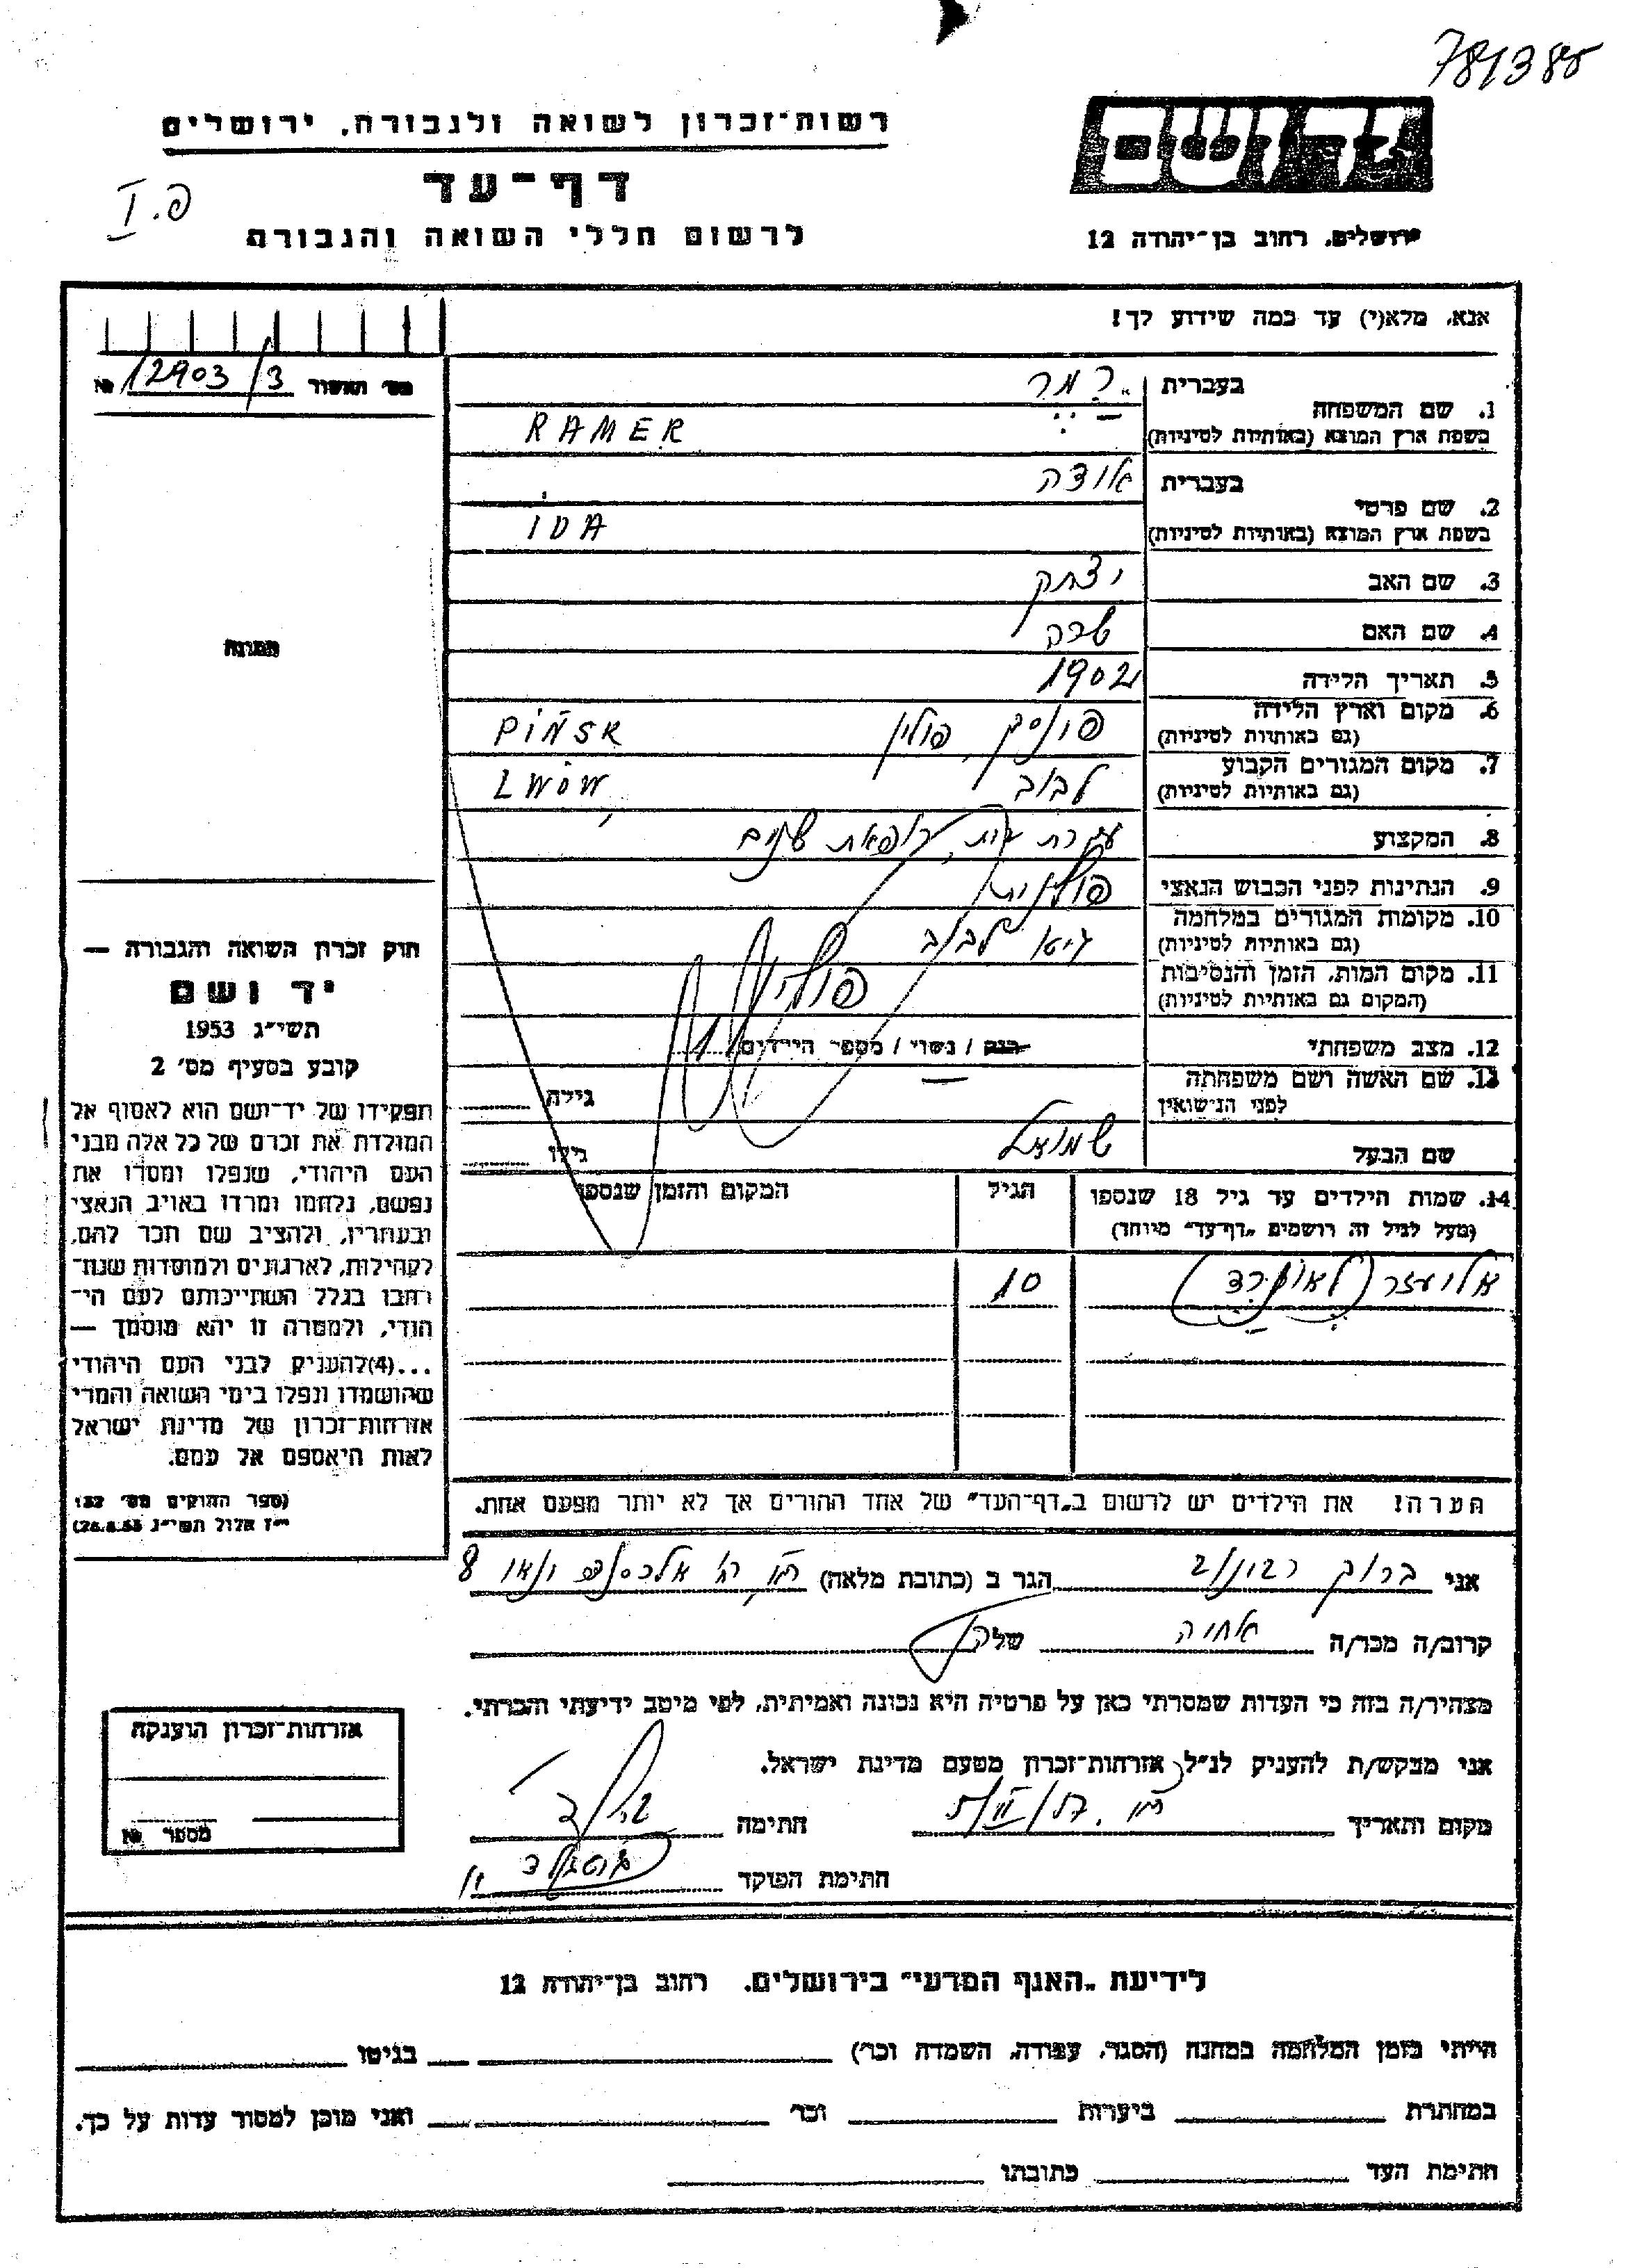 781388
רשות־זכרון לשואה ולגבורה, ירושלים
ידושם
דף־עד
פ.I
לרשום חללי השואה והגבורה
ירושלים, רחוב בן־יהודה 12
אנא, מלא(י) עד כמה שידוע לך!
מס' תאשור 12903/3 №
1. שם המשפחה
בעברית רמר
בשפת ארץ המוצא (באותיות לטיניות) RAMER
2. שם פרטי
בעברית אידה
בשפת ארץ המוצא (באותיות לטיניות) IDA
3. שם האב יצחק
4. שם האם שרה
5. תאריך הלידה 1902
6. מקום וארץ הלידה פינסק, פולין PIŃSK
(גם באותיות לטיניות)
7. מקום המגורים הקבוע לבוב LWÓW
(גם באותיות לטיניות)
8. המקצוע עקרת בית, רופאת שינים
9. הנתינות לפני הכבוש הנאצי פולנית
10. מקומות המגורים במלחמה גיטו לבוב
(גם באותיות לטיניות)
11. מקום המות, הזמן והנסיבות פולין
(המקום גם באותיות לטיניות)
12. מצב משפחתי רווק / נשוי / מספר הילדים 1
13. שם האשה ושם משפחתה
לפני הנישואין
גילה
שם הבעל שמואל
גילו
תמונה
14. שמות הילדים עד גיל 18 שנספו
(מעל לגיל זה רושמים „דף־עד" מיוחד)
הגיל
המקום והזמן שנספו
אליעזר (לאונרד) 10
הערה! את הילדים יש לרשום ב„דף־העד" של אחד ההורים אך לא יותר מפעם אחת.
חוק זכרון השואה והגבורה —
יד ושם
תשי״ג 1953
קובע בסעיף מס' 2
תפקידו של יד־ושם הוא לאסוף אל
המולדת את זכרם של כל אלה מבני
העם היהודי, שנפלו ומסרו את
נפשם, נלחמו ומרדו באויב הנאצי
ובעוזריו, ולהציב שם וזכר להם,
לקהילות, לארגונים ולמוסדות שנח־
רבו בגלל השתייכותם לעם הי־
הודי, ולמטרה זו יהא מוסמך —
...(4)להעניק לבני העם היהודי
שהושמדו ונפלו בימי השואה והמרי
אזרחות־זכרון של מדינת ישראל
לאות היאספם אל עמם.
(ספר החוקים מס' 132
י״ז אלול תשי״ג 28.8.53)
אני ברוך
הגר ב (כתובת מלאה) 8
קרוב/ה מכר/ה אחיה של
מצהיר/ה בזה כי העדות שמסרתי כאן על פרטיה היא נכונה ואמיתית, לפי מיטב ידיעתי והכרתי.
אני מבקש/ת להעניק לנ״ל אזרחות־זכרון מטעם מדינת ישראל.
מקום ותאריך
חתימה
חתימת הפוקד
אזרחות־זכרון הוענקה
מספר №
לידיעת „האגף המדעי" בירושלים, רחוב בן־יהודה 12
הייתי בזמן המלחמה במחנה (הסגר, עבודה, השמדה וכר') בגיטו
במחתרת ביערות וכר' ואני מוכן למסור עדות על כך.
חתימת העד כתובתו